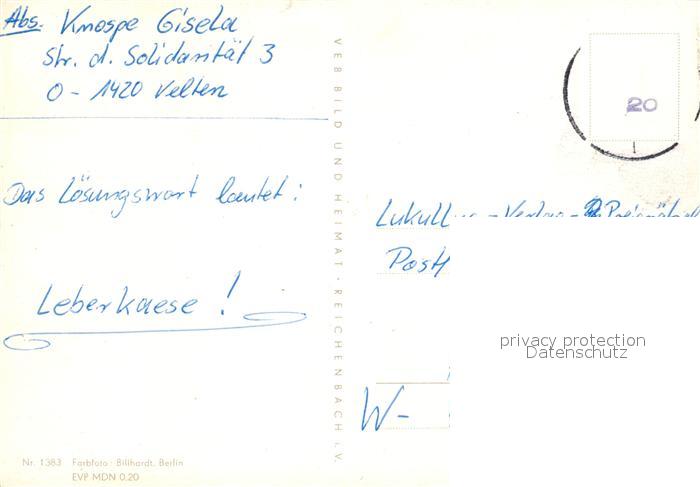 Abs. Knospe Gisela
Str. d. Solidarität 3
O - 1420 Velten
Das Lösungswort lautet:
Leberkaese!
Nr. 1383 Farbfoto: Billhardt, Berlin
EVP MDN 0,20
VEB BILD UND HEIMAT · REICHENBACH i. V.
20
Lukull
Verlag -
Post
W-
privacy protection
Datenschutz